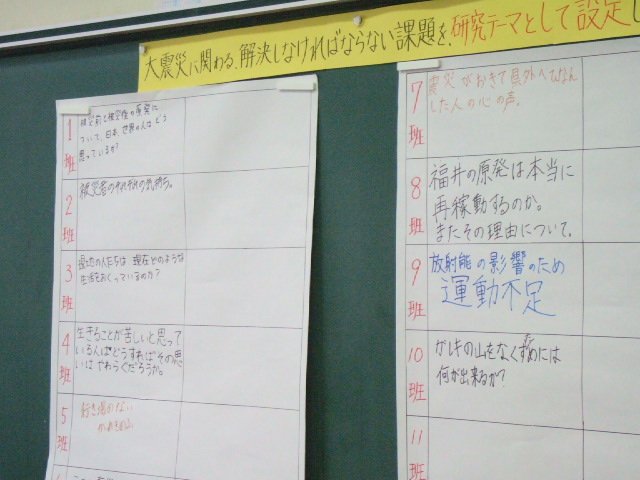 大震災に関わる、解決しなければならない課題を、研究テーマとして設定し
1班
震災前と被災後の原発に
ついて、日本、世界の人はどう
思っているか?
2班
被災者のそれぞれの気持ち。
3班
現在どのような
生活をおくっているのか?
4班
生きることが苦しいと思って
いる人はどうすればその思
いはやわらぐだろうか。
5班
行き場のない
がれきの山
7班
震災がおきて県外へひなん
した人の心の声。
8班
福井の原発は本当に
再稼動するのか。
またその理由について。
9班
放射能の影響のため
運動不足
10班
ガレキの山をなくすためには
何が出来るか?
11班